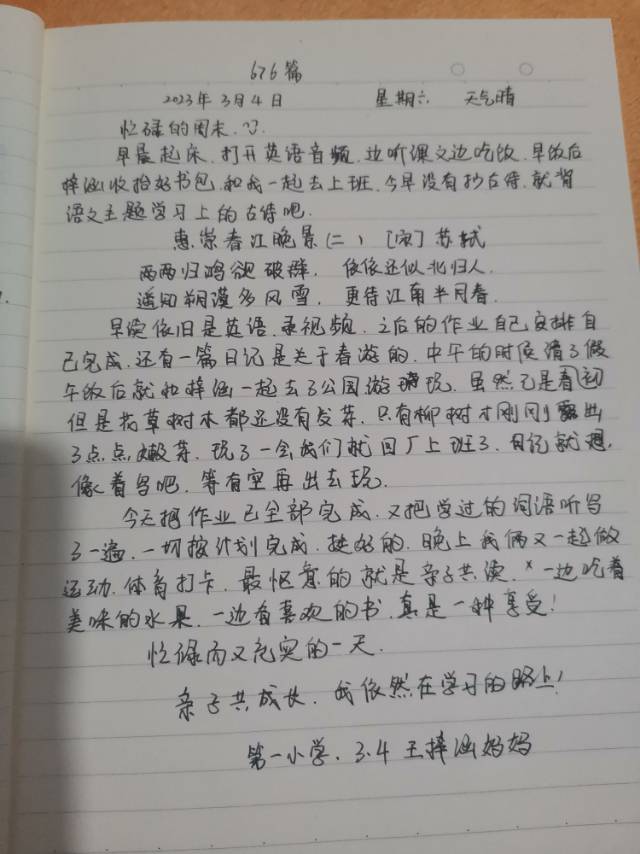 676篇
2023年3月4日 星期六 天气晴
忙碌的周末.
早晨起床.打开英语音频.边听课文边吃饭.早饭后
梓涵收拾好书包.和我一起去上班.今早没有抄古诗.就背
语文主题学习上的古诗吧.
惠崇春江晚景(二) [宋] 苏轼
两两归鸿欲破群. 依依还似北归人.
遥知朔漠多风雪. 更待江南半月春.
早读依旧是英语.录视频.之后的作业自己安排自
己完成.还有一篇日记是关于春游的.中午的时候请了假
午饭后就和梓涵一起去了公园游玩.虽然已是春初
但是花草树木都还没有发芽.只有柳树才刚刚露出
了点点嫩芽.玩了一会我们就回厂上班了.日记就想
像着写吧.等有空再出去玩.
今天把作业已全部完成.又把学过的词语听写
了一遍.一切按计划完成.挺好的.晚上我俩又一起做
运动.体育打卡.最惬意的就是亲子共读.一边吃着
美味的水果.一边看喜欢的书.真是一种享受!
忙碌而又充实的一天.
亲子共成长.我依然在学习的路上!
第一小学.3.4 王梓涵妈妈